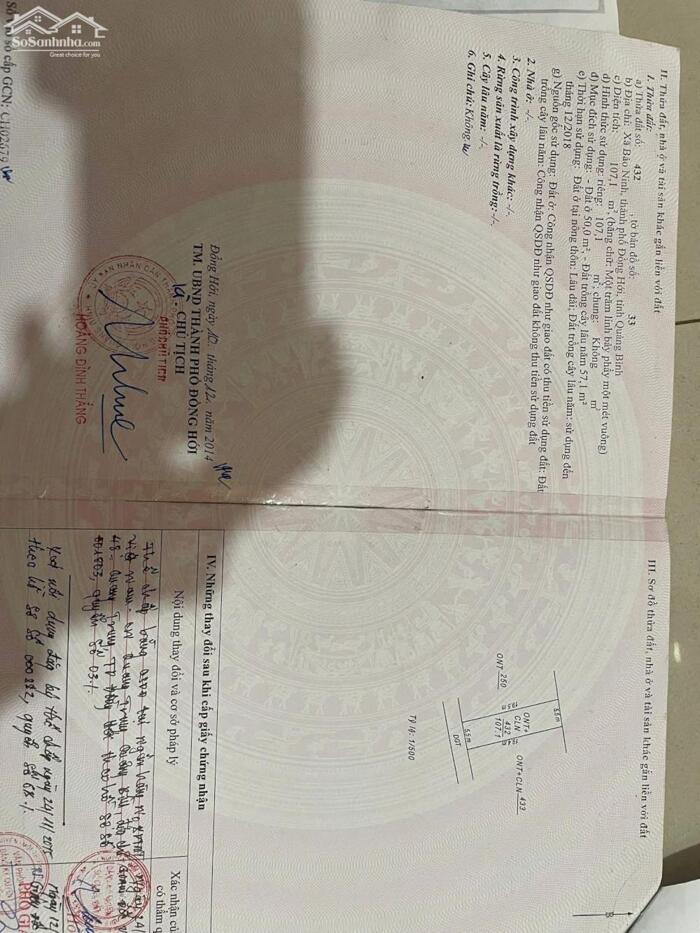 SoSanhnha.com
Great choice for you
II. Thửa đất, nhà ở và tài sản khác gắn liền với đất
1. Thửa đất:
a) Thửa đất số: 432 , tờ bản đồ số: 33
b) Địa chỉ: Xã Bảo Ninh, thành phố Đồng Hới, tỉnh Quảng Bình
c) Diện tích: 107,1 m², (bằng chữ: Một trăm linh bảy phẩy một mét vuông)
d) Hình thức sử dụng: riêng: 107,1 m²; chung: Không m²
đ) Mục đích sử dụng: - Đất ở 50,0 m², - Đất trồng cây lâu năm 57,1 m²
e) Thời hạn sử dụng: Đất ở tại nông thôn: Lâu dài; Đất trồng cây lâu năm: sử dụng đến
tháng 12/2018
g) Nguồn gốc sử dụng: Đất ở: Công nhận QSDĐ như giao đất có thu tiền sử dụng đất; Đất
trồng cây lâu năm: Công nhận QSDĐ như giao đất không thu tiền sử dụng đất
2. Nhà ở: -/-.
3. Công trình xây dựng khác: -/-.
4. Rừng sản xuất là rừng trồng: -/-.
5. Cây lâu năm: -/-.
6. Ghi chú: Không
Đồng Hới, ngày 12 tháng 12 năm 2014
TM. UBND THÀNH PHỐ ĐỒNG HỚI
CHỦ TỊCH
PHÓ CHỦ TỊCH
HOÀNG ĐÌNH THẮNG
Số vào sổ cấp GCN: CH02679
III. Sơ đồ thửa đất, nhà ở và tài sản khác gắn liền với đất
5.5 m
ONT 250
ONT+
CLN
432
107.1
ONT+CLN 433
5.5 m
ĐGT
Tỷ lệ: 1/500
IV. Những thay đổi sau khi cấp giấy chứng nhận
Nội dung thay đổi và cơ sở pháp lý
Xác nhận củ
có thẩm q
Thế chấp bằng QSDĐ tại Ngân hàng
Xóa nội dung đăng ký thế chấp ngày 24/11/2015
theo hồ sơ số 000222, quyển số 08